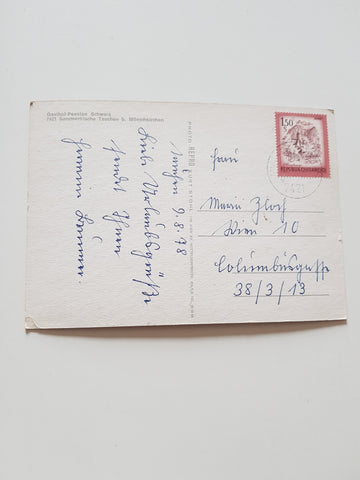 Gasthof-Pension Schwarz
7421 Sommerfrische Tauchen b. Mönichkirchen
Tauchen 9.8.78
Liebe Urlaubsgrüße
sendet Ihnen
1,50
REPUBLIK ÖSTERREICH
7421
Frau
Maria Zloch
Wien 10
Columbusgasse
38/3/13